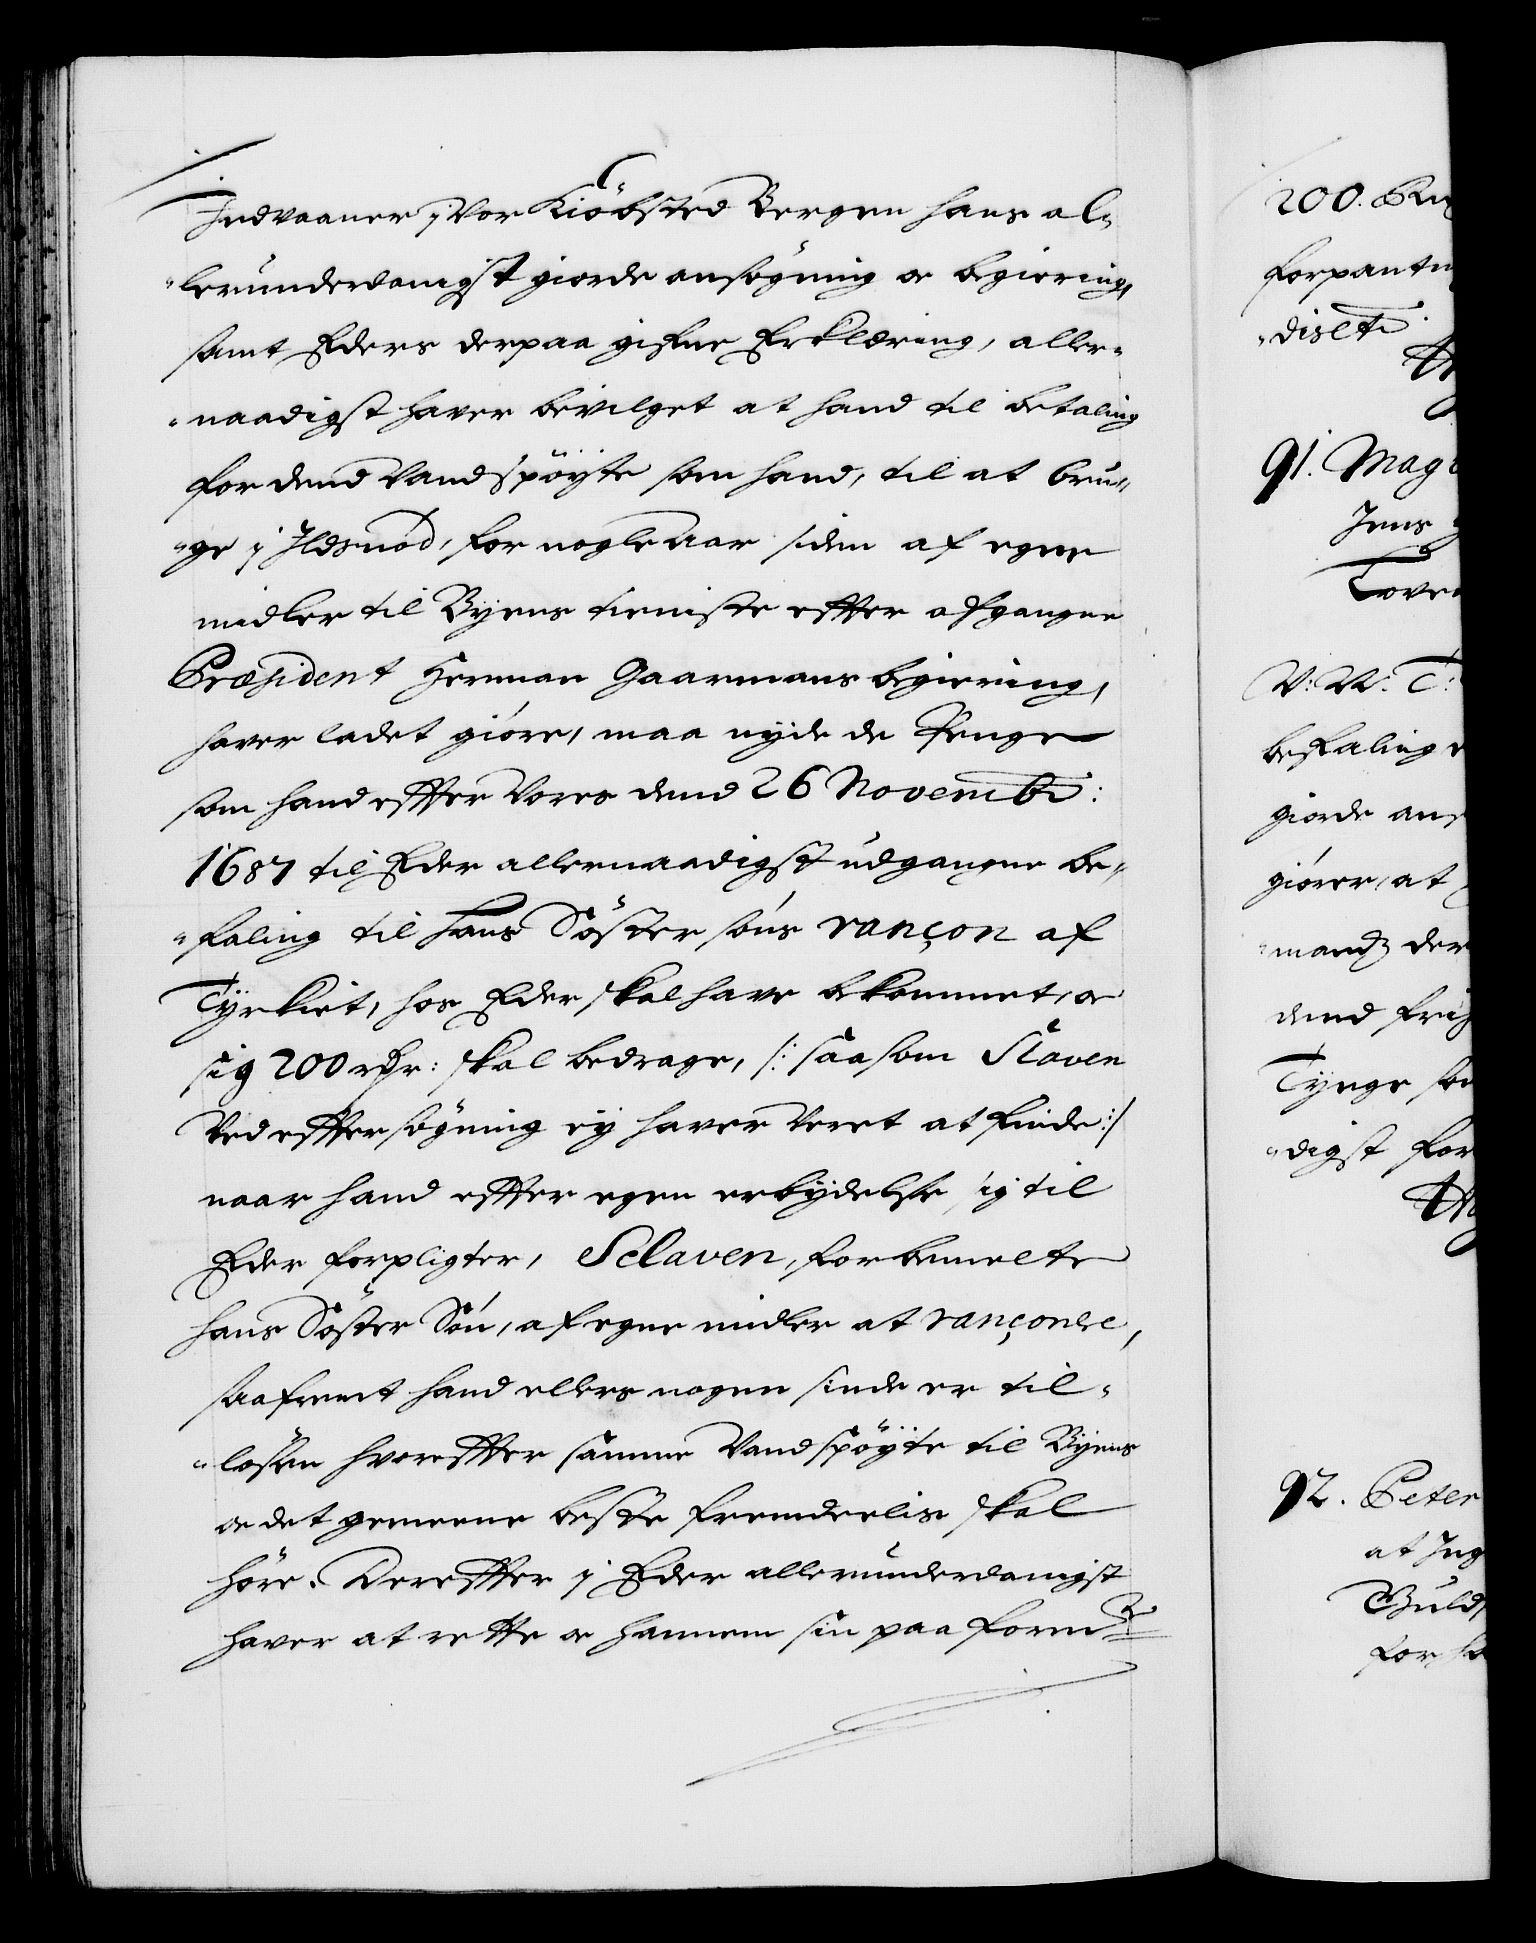 Indvaaner j Vor Kiöbsted Bergen hans al-
lerunderdanigst giorde ansøgning oc begiering,
samt Eders derpaa gifne Erklæring, aller-
naadigst haver bevilget at hand til betaling
for dend Vandspöyte som hand, til at bru-
ge j Ildsnöd, for nogle Aar siden af egne
midler til Byens tieniste effter afgangne
Præsident Herman Gaarmans begiering,
haver ladet giöre, maa nyde de Penge
som hand effter Vores dend 26 Novembr:
1687 til Eder allernaadigst udgangne be-
faling til hans Söster söns rançon af
Tyrkiet, hos Eder skal have bekommet, oc
sig 200 rdr: skal bedrage, /: saasom Slaven
Ved effter søgning ey haver Veret at finde :/
naar hand effter egen erbydelse sig til
Eder forpligter, Sclaven, forbemelte
hans Söster Sön, af egne midler at rançonere,
saafremt hand ellers nogen sinde er til-
losen hvoreffter samme Vandspöyte til Byens
oc det gemeene beste fremdeelis skal
höre. Dereffter j Eder allerunderdanigst
haver at rette oc hannem sin paa form
200.
forpantn
91. Mag
Jens
Tove
V: W: T:
befaling
giorde ans
giörer, at
mand der
dend frj
Tynge so
digst for
92. Peter
at Ing
Guld
for